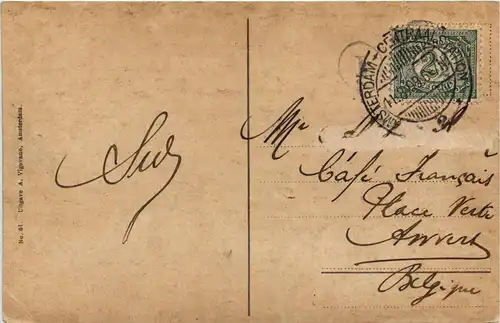 No. 51. Uitgave A. Vigevano, Amsterdam.
AMSTERDAM-CENTRAALSTATION
2½
Mr
Café Français
Place Verte
Anvers
Belgique